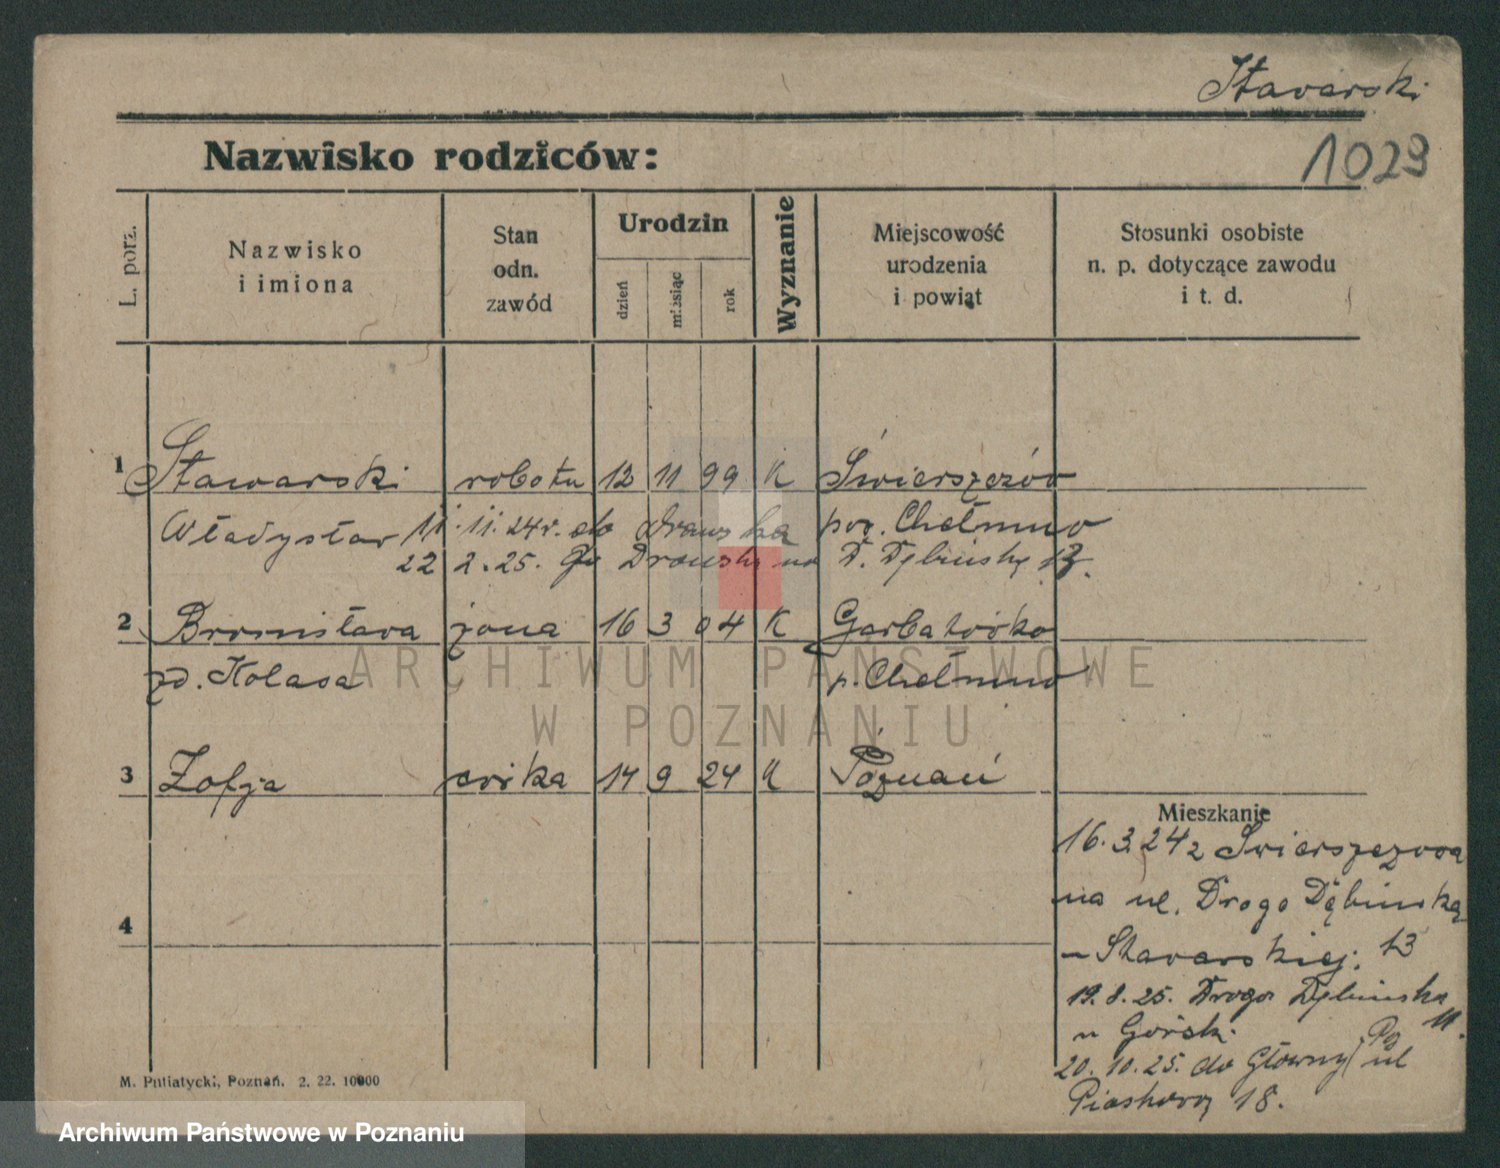 Stawarski
1029
Nazwisko rodziców:
L. porz.
Nazwisko
i imiona
Stan
odn.
zawód
Urodzin
dzień
miesiąc
rok
Wyznanie
Miejscowość
urodzenia
i powiat
Stosunki osobiste
n. p. dotyczące zawodu
i t. d.
1 Stawarski robotn 12 11 99 K Świerszczów
Władysław 11.11.24r. do Drawska pow. Chełmno
22 2.25. Drawska na D. Dębińską 13.
2 Bronisława żona 16 3 04 K Garbatówka
zd. Kolasa p. Chełmno
ARCHIWUM PAŃSTWOWE
W POZNANIU
3 Zofja córka 14 9 24 K Poznań
Mieszkanie
16.3.24 z Świerszczowa
na ul. Droga Dębińska
u Stawarskiej. 13
4
19.8.25. Droga Dębińska 11.
u Górski
20.10.25. do Główny ul
Piaskowa 18.
M. Putiatycki, Poznań. 2. 22. 10000
Archiwum Państwowe w Poznaniu